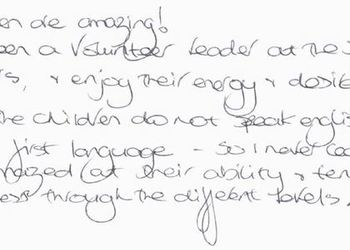 en are amazing!
een a Volunteer Leader at the
rs, & enjoy their energy & desire
he children do not speak englis
first language - so I never cea
mazed (at their ability & ten
ess through the different levels.